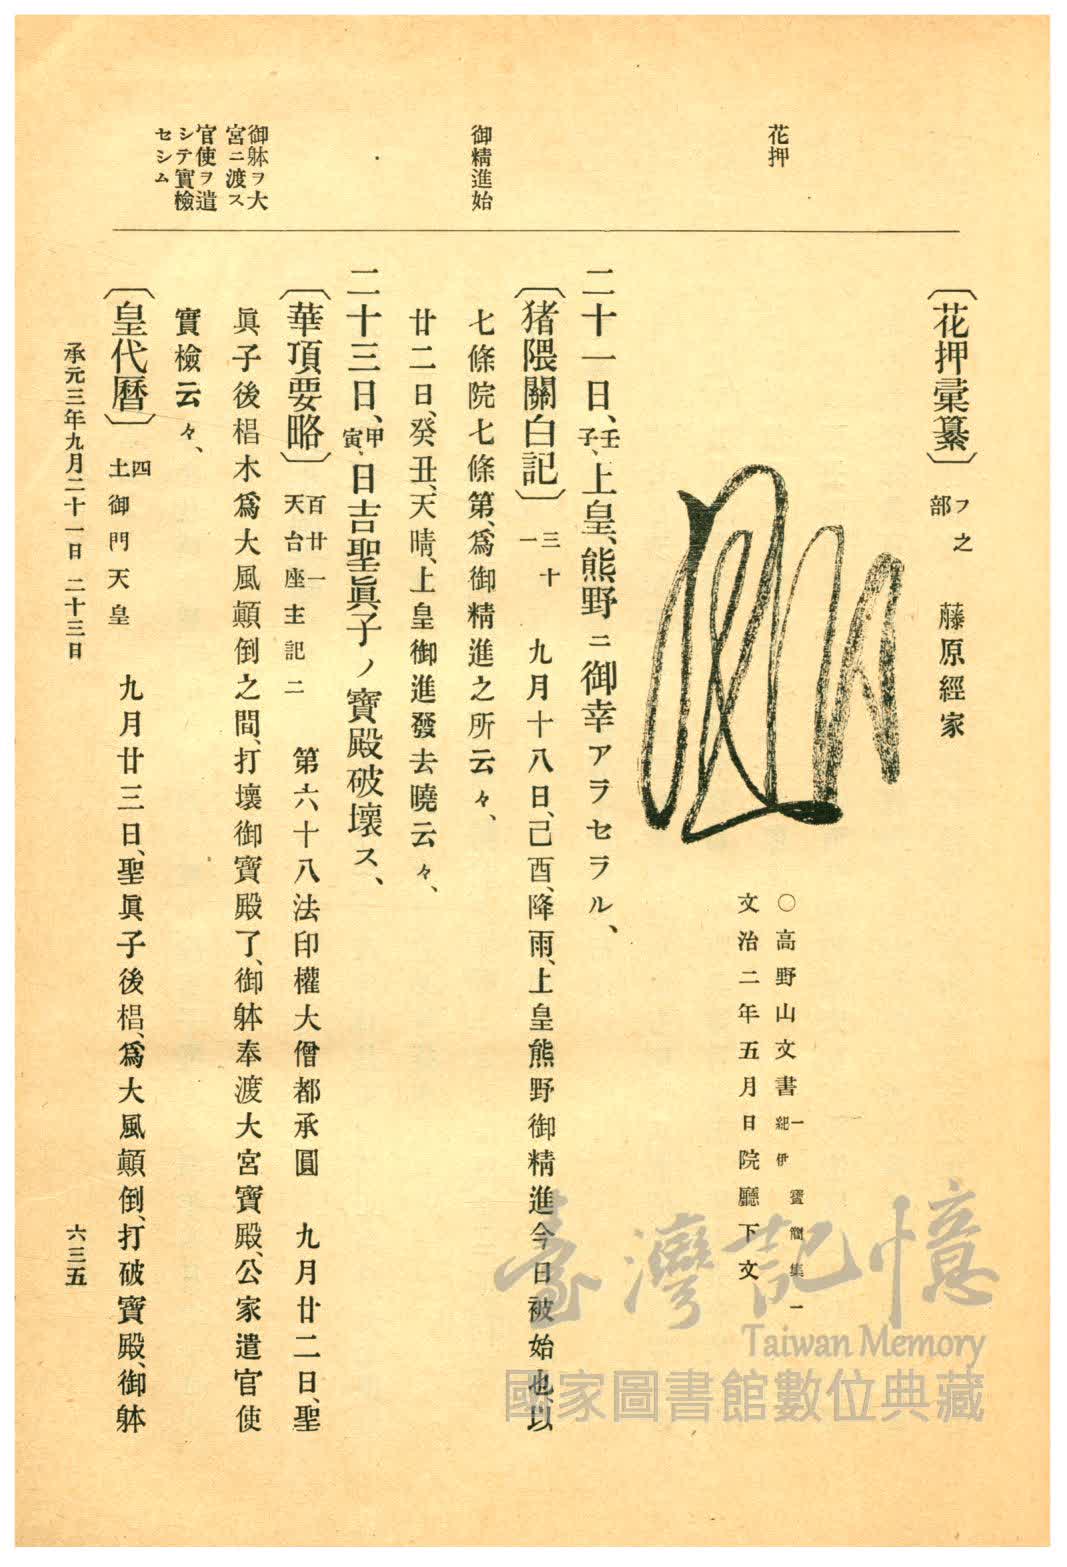 花押
御精進始
御躰ヲ大
宮ニ渡ス
官使ヲ遣
シテ實檢
セシム
〔花押彙纂〕フ之部 藤原經家
○高野山文書一紀伊 寶簡集一
文治二年五月日院廳下文
二十一日、壬子、上皇、熊野ニ御幸アラセラル、
〔猪隈關白記〕三十一 九月十八日、己酉、降雨、上皇熊野御精進今日被始也、以
七條院七條第、爲御精進之所云々、
廿二日、癸丑、天晴、上皇御進發去曉云々、
二十三日、甲寅、日吉聖眞子ノ寶殿破壞ス、
〔華頂要略〕百廿一天台座主記二 第六十八法印權大僧都承圓 九月廿二日、聖
眞子後椙木爲大風顚倒之間、打壞御寶殿了、御躰奉渡大宮寶殿、公家遣官使
實檢云々、
〔皇代曆〕四土御門天皇 九月廿三日、聖眞子後椙、爲大風顚倒、打破寶殿、御躰
承元三年九月二十一日 二十三日
六三五
臺灣記憶
Taiwan Memory
國家圖書館數位典藏